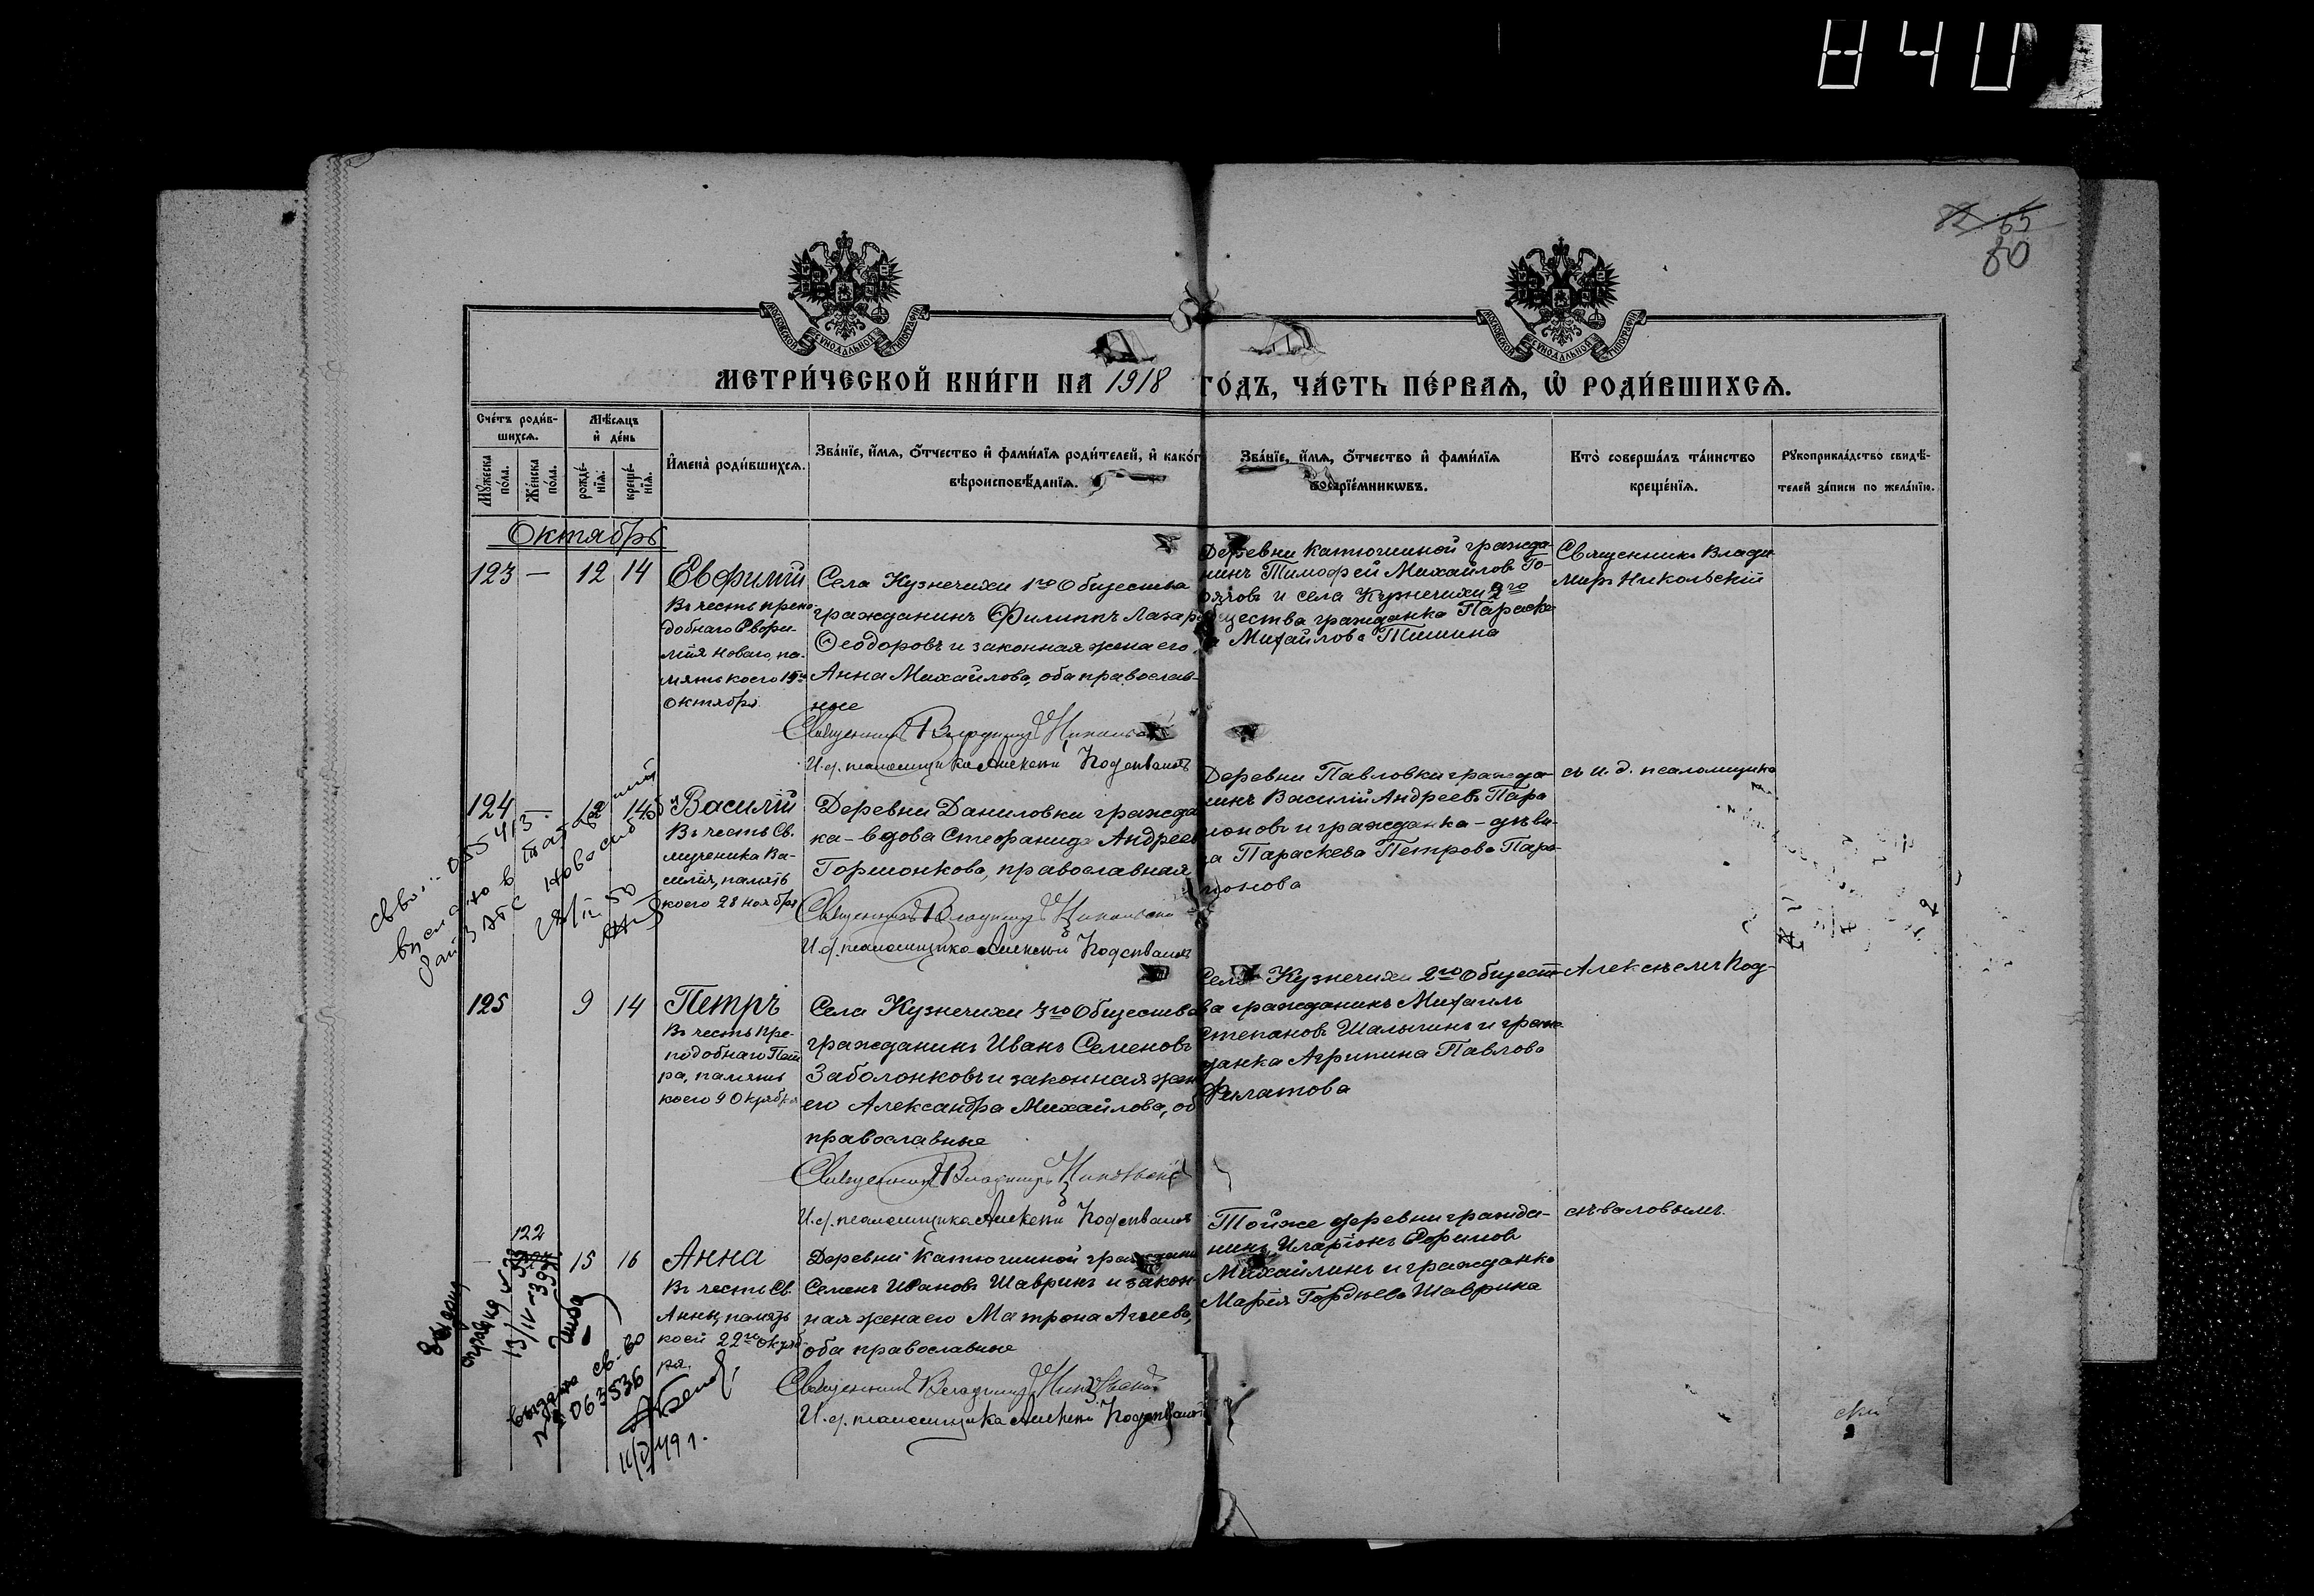 840
82 65
80
МОСКОВСКОЙ СУНОДАЛЬНОЙ ТИПОГРАФІИ
МОСКОВСКОЙ СУНОДАЛЬНОЙ ТИПОГРАФІИ
МЕТРИ́ЧЕСКОЙ КНИ́ГИ НА 1918 ГО́ДЪ, ЧА́СТЬ ПЕ́РВАЯ, Ѡ҆ РОДИ́ВШИХСЯ.
Сче́тъ роди́в-
шихся.
Мꙋ́жеска
по́ла.
Же́нска
по́ла.
Мѣ́сяцъ
и҆ де́нь
рожде́-
нїѧ.
креще́-
нїѧ.
И҆мена̀ роди́вшихся.
Зва́нїе, и҆́мѧ, ѻ҆́тчество и҆ фами́лїѧ роди́телей, и҆ како́г
вѣроисповѣ́данїѧ.
Зва́нїе, и҆́мѧ, ѻ҆́тчество и҆ фами́лїѧ
воспрїе́мникѡвъ.
Кто̀ соверша́лъ та́инство
креще́нїѧ.
Рꙋкоприкла́дство свидѣ́-
телей за́писи по жела́нїю.
Октябрь
123 — 12 14
Евфимій
Въ честь препо-
добнаго Евфи-
мія новаго, па-
мять коего 15го
октября
Села Кузнечихи 1го Общества
гражданинъ Филиппъ Лазар
Ѳеодоровъ и законная жена его
Анна Михайлова, оба православ-
ные
Священникъ Владимиръ Никольскій
И. д. псаломщика Алексѣй
Деревни Катюшиной гражда-
нинъ Тимофей Михайловъ
и села Кузнечихи 2го
Общества гражданка Параске-
ва Михайлова Тишина
Священникъ Влади-
миръ Никольскій
124 — 12 14
Василій
Въ честь Св.
мученика Ва-
силія, память
коего 28 ноября
Деревни Даниловки гражда
ка - вдова Стефанида Андреев
Горшонкова, православная
Священникъ Владимиръ Никольскій
И. д. псаломщика Алексѣй
Деревни Павловки гражда-
нинъ Василій Андреевъ
и гражданка - дѣви-
ца Параскева Петрова
съ и. д. псаломщика
125 9 14
Петръ
Въ честь Пре-
подобнаго Пет-
ра, память
коего 9 Октября
Села Кузнечихи 3го Общества
гражданинъ Иванъ Семеновъ
Заболонковъ и законная жен
его Александра Михайлова, об
православные
Священникъ Владимиръ Никольскій
И. д. псаломщика Алексѣй
Села Кузнечихи 2го Общест-
ва гражданинъ Михаилъ
Степановъ Шалыгинъ и граж-
данка Агрипина Павлова
Филатова
Алексѣемъ Под-
122
15 16
Анна
Въ честь Св.
Анны, память
коей 22го октяб-
ря.
Деревни Катюшиной граждани
Семенъ Ивановъ Шавринъ и закон-
ная жена его Матрона Агеева,
оба православные
Священникъ Владимиръ Никольскій
И. д. псаломщика Алексѣй
Тойже деревни гражда-
нинъ Иларіонъ Ефимовъ
Михайлинъ и гражданка
Марія Гордѣева Шаврина
выдано св-во
№ 063536